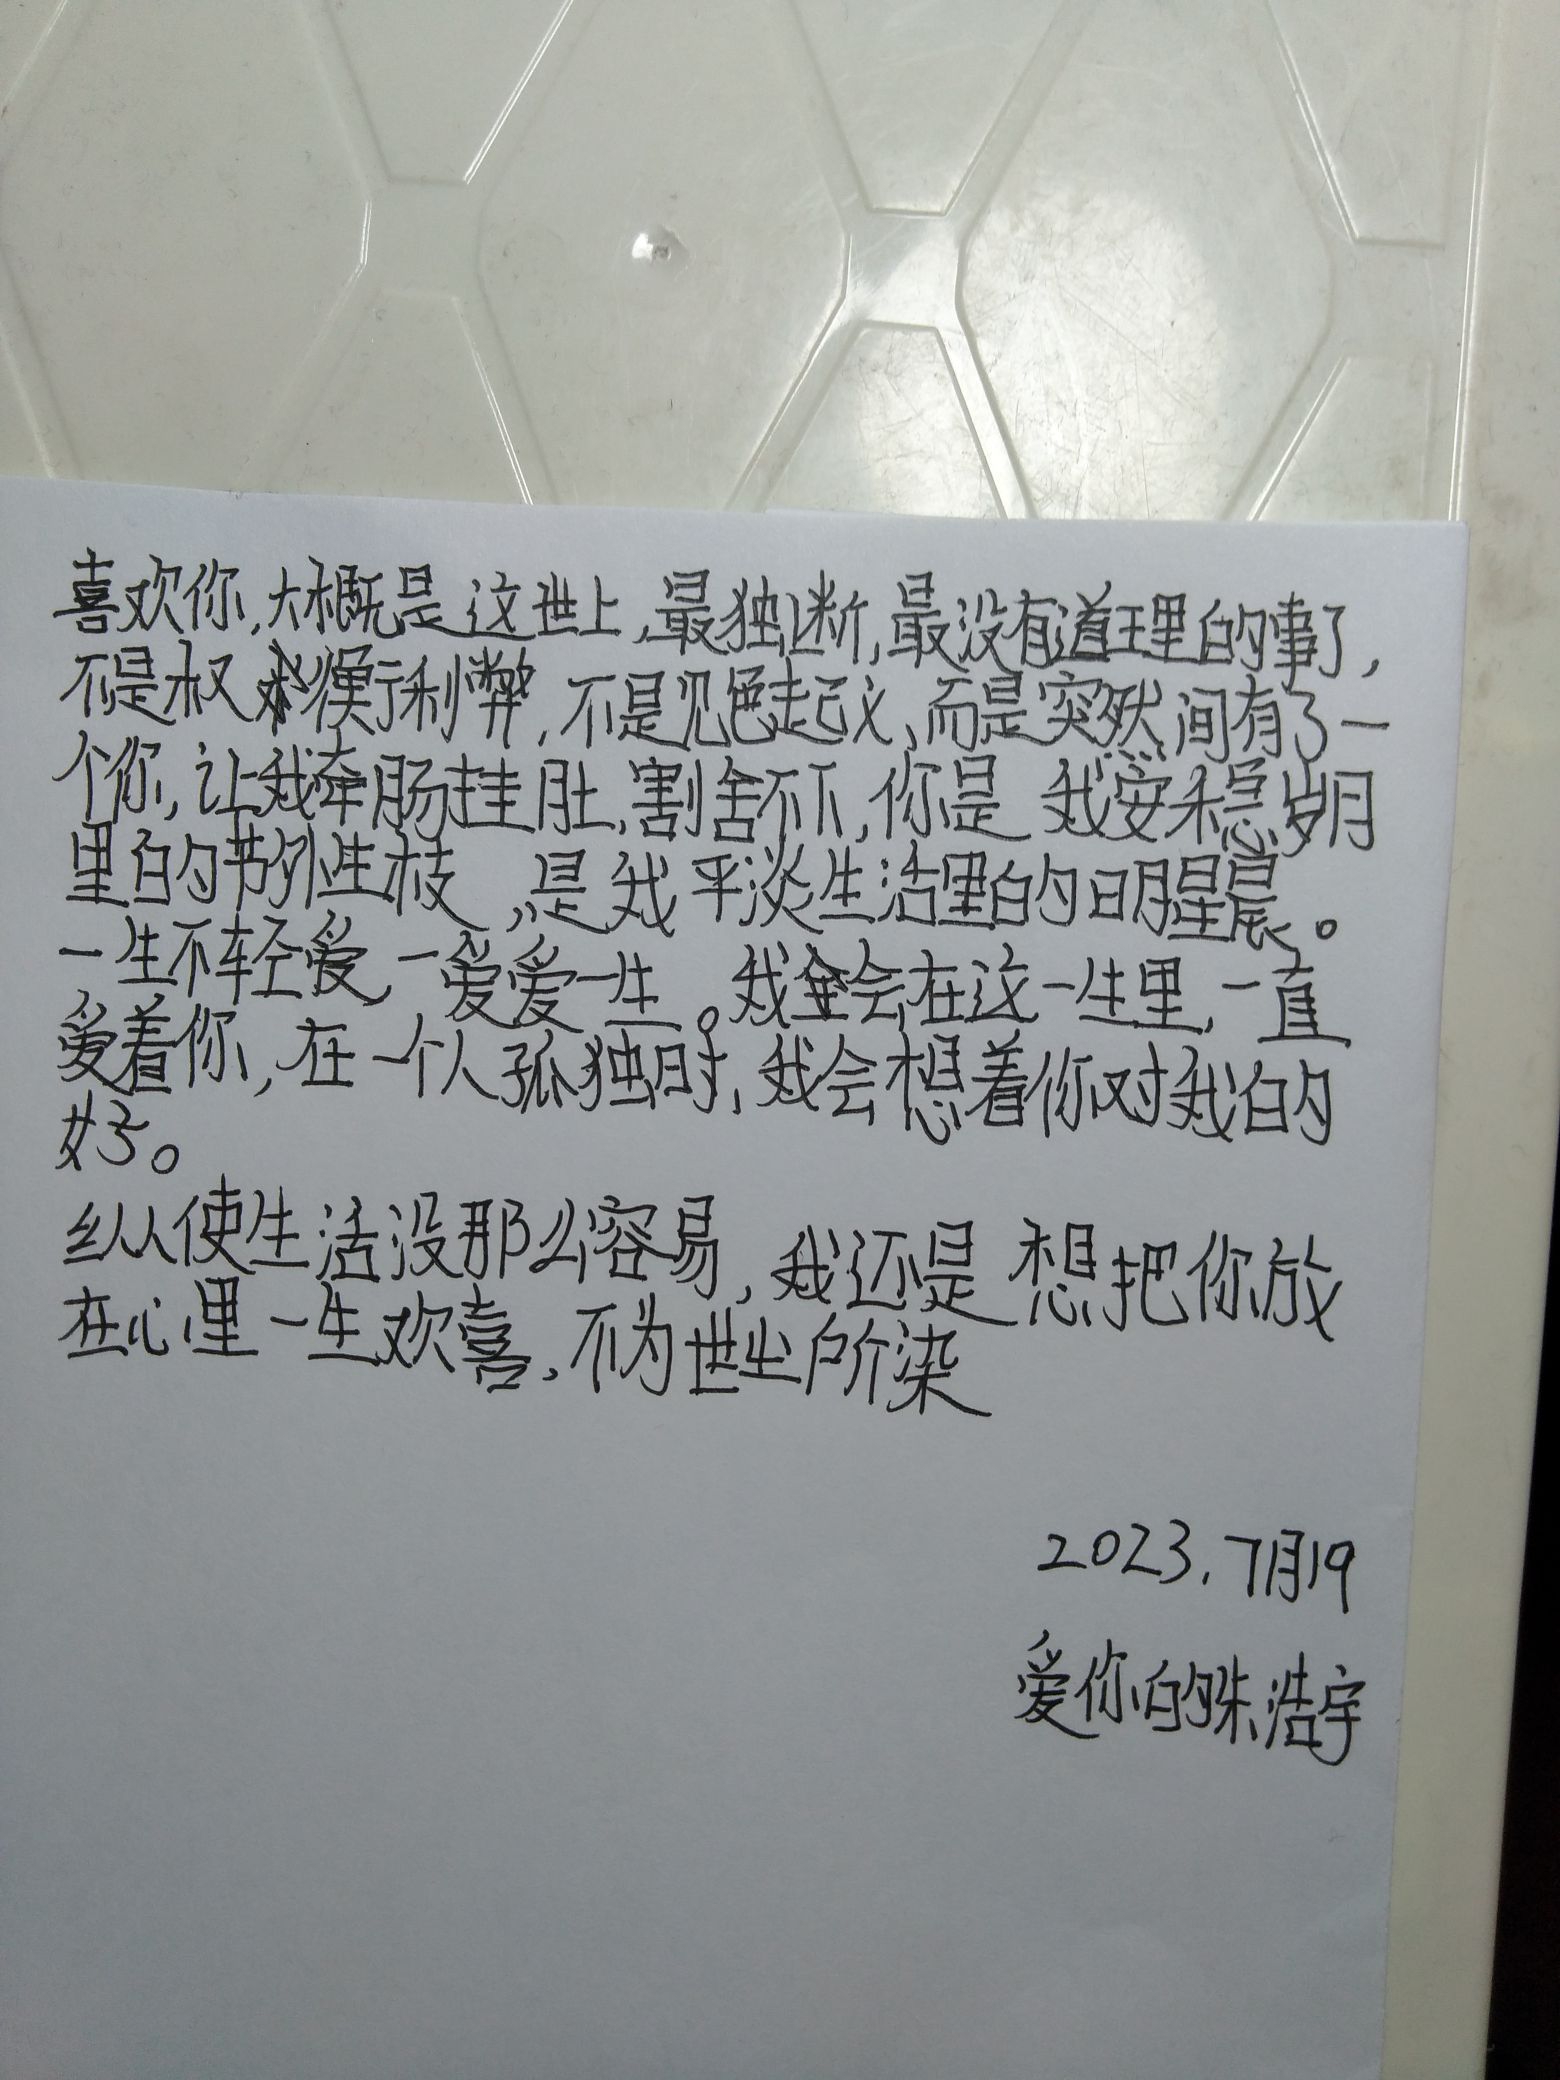 喜欢你,大概是这世上,最独断,最没有道理的事了,
不是权衡利弊,不是见色起义,而是突然间有了一
个你,让我牵肠挂肚,割舍不下,你是我安稳岁月
里的节外生枝,是我平淡生活里的日月星晨。
一生不轻爱,一爱爱一生。我会在这一生里,一直
爱着你,在一个人孤独时,我会想着你对我的
好。
纵使生活没那么容易,我还是想把你放
在心里一生欢喜,不为世尘所染
2023.7月19
爱你的 浩宇